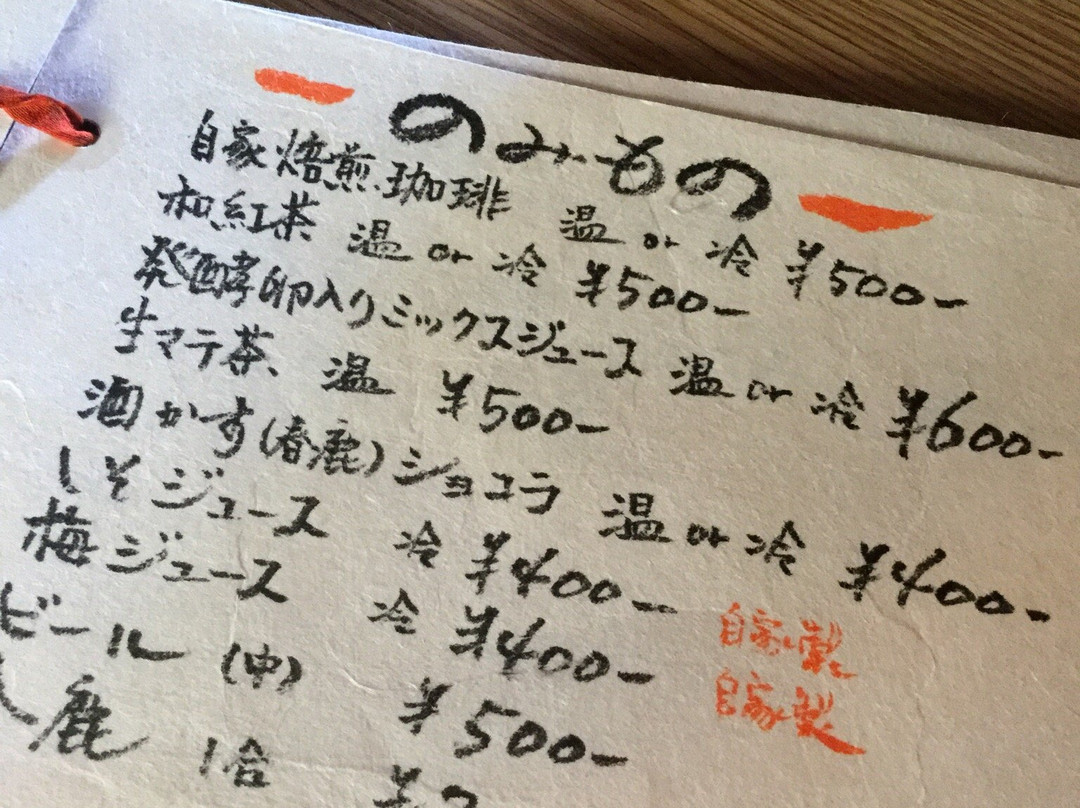 のみもの
自家焙煎珈琲 温 or 冷 ¥500-
和紅茶 温 or 冷 ¥500-
発酵卵入りミックスジュース 温 or 冷 ¥600-
生マテ茶 温 ¥500-
酒かす(春鹿)ショコラ 温 or 冷 ¥400-
しそジュース 冷 ¥400- 自家製
梅ジュース 冷 ¥400- 自家製
ビール (中) ¥500-
鹿 1合 ¥